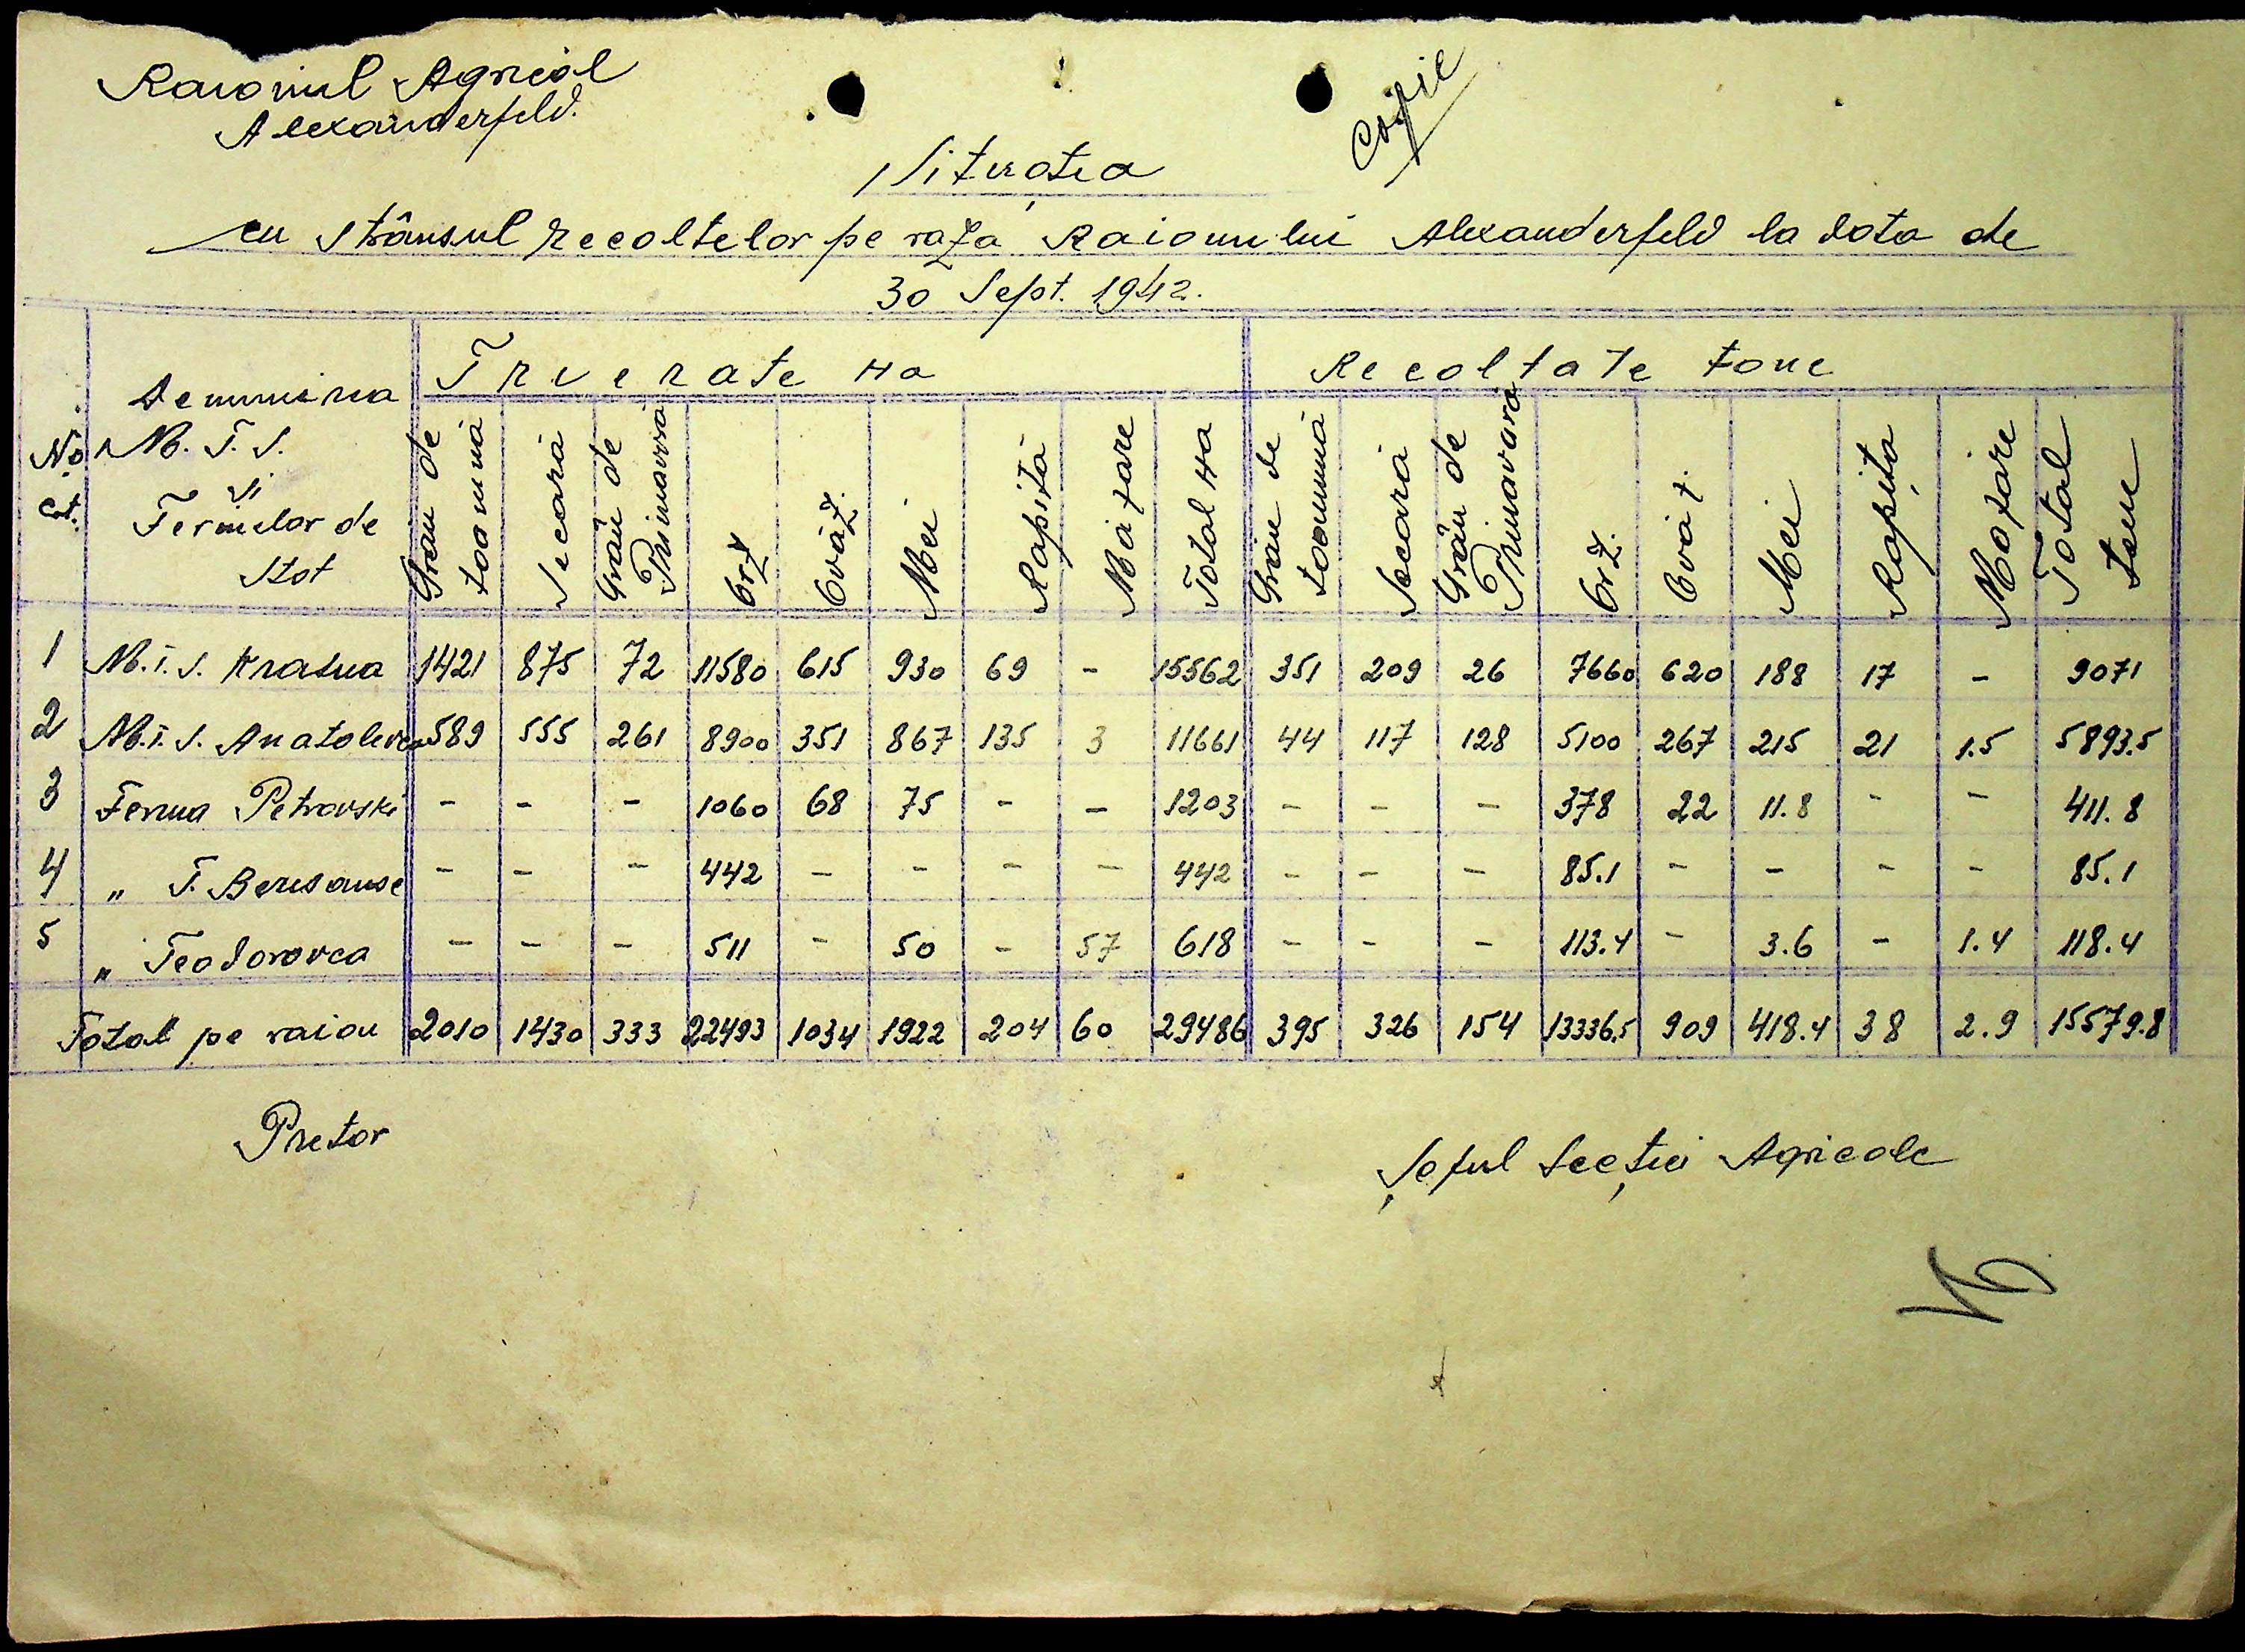 Raionul Agricol
Alexanderfeld.
Copie
Situația
cu strânsul recoltelor pe raza Raionului Alexanderfeld la data de
30 Sept. 1942.
No Crt.
Denumirea M.T.S. și Fermelor de Stat
Treerate Ha
Recoltate tone
Grâu de toamnă | Secară | Grâu de Primăvară | Orz | Ovăz. | Mei | Rapiță | Mazare | Total Ha | Grâu de toamnă | Secară | Grâu de Primăvară | Orz. | Ovăz. | Mei | Rapița | Mazare | Total tone
1 M.T.S. Krasna 1421 875 72 11580 615 930 69 - 15562 351 209 26 7660 620 188 17 - 9071
2 M.T.S. Anatolevca 589 555 261 8900 351 867 135 3 11661 44 117 128 5100 267 215 21 1.5 5893.5
3 Ferma Petrovski - - - 1060 68 75 - - 1203 - - - 378 22 11.8 - - 411.8
4 „ T. - - - 442 - - - - 442 - - - 85.1 - - - - 85.1
5 „ Teodorovca - - - 511 - 50 - 57 618 - - - 113.4 - 3.6 - 1.4 118.4
Total pe raion 2010 1430 333 22493 1034 1922 204 60 29486 395 326 154 13336.5 909 418.4 38 2.9 15579.8
Pretor
Șeful Secției Agricole